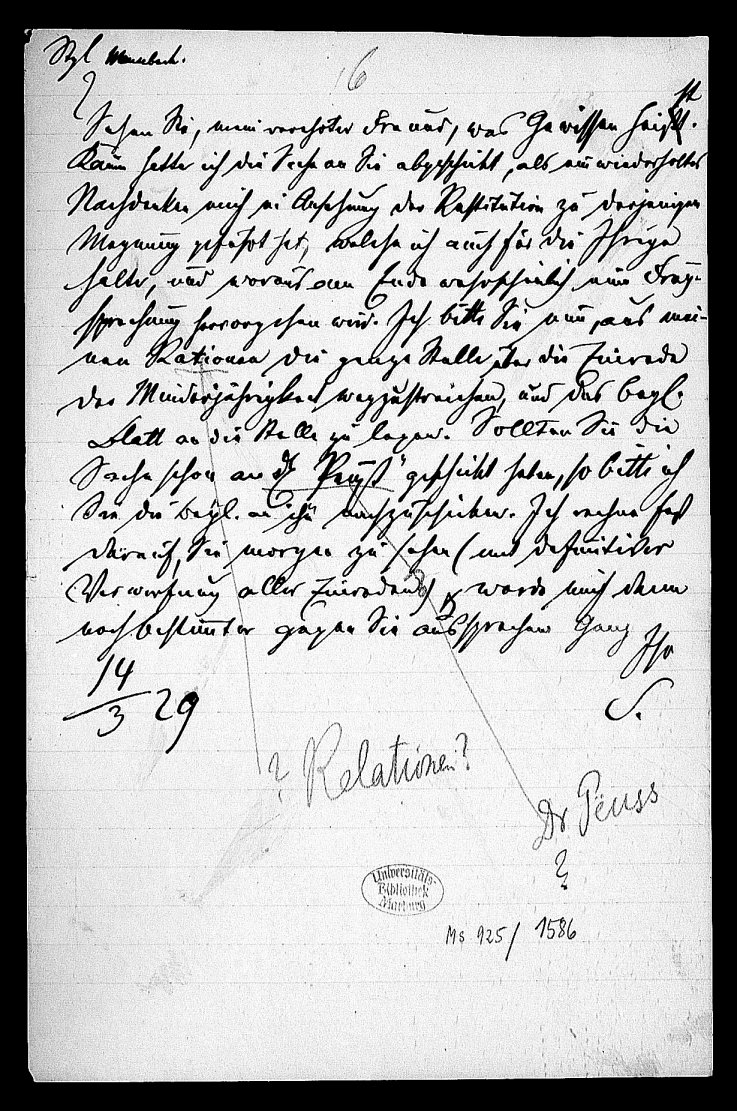 6
Sehen Sie, mein verehrter Freund, was Gewissen heißt.
Kaum hatte ich die Sache an Sie abgeschickt, als ein wiederholtes
Nachdenken mich in Ansehung der Restitution zu derjenigen
Meynung geführt hat, welche ich auch für die Ihrige
halte, und woraus am Ende wahrscheinlich eine Frey-
sprechung hervorgehen wird. Ich bitte Sie nun, aus mei-
nen Rationen die ganze Stelle über die Einrede
der Minderjährigkeit wegzustreichen, und das beyl.
Blatt an die Stelle zu legen. Sollten Sie die
Sache schon an geschickt haben, so bitte ich
Sie die Beyl. an ihn nachzuschicken. Ich rechne fest
darauf, Sie morgen zu sehen (mit definitiver
Verwerfung aller Einreden), werde mich dann
noch bestimmter gegen Sie aussprechen Ganz
Ihr
S.
14
3 29
? Relationen?
Dr Peuss
?
Universitäts-
Bibliothek
Marburg
Ms 925/ 1586